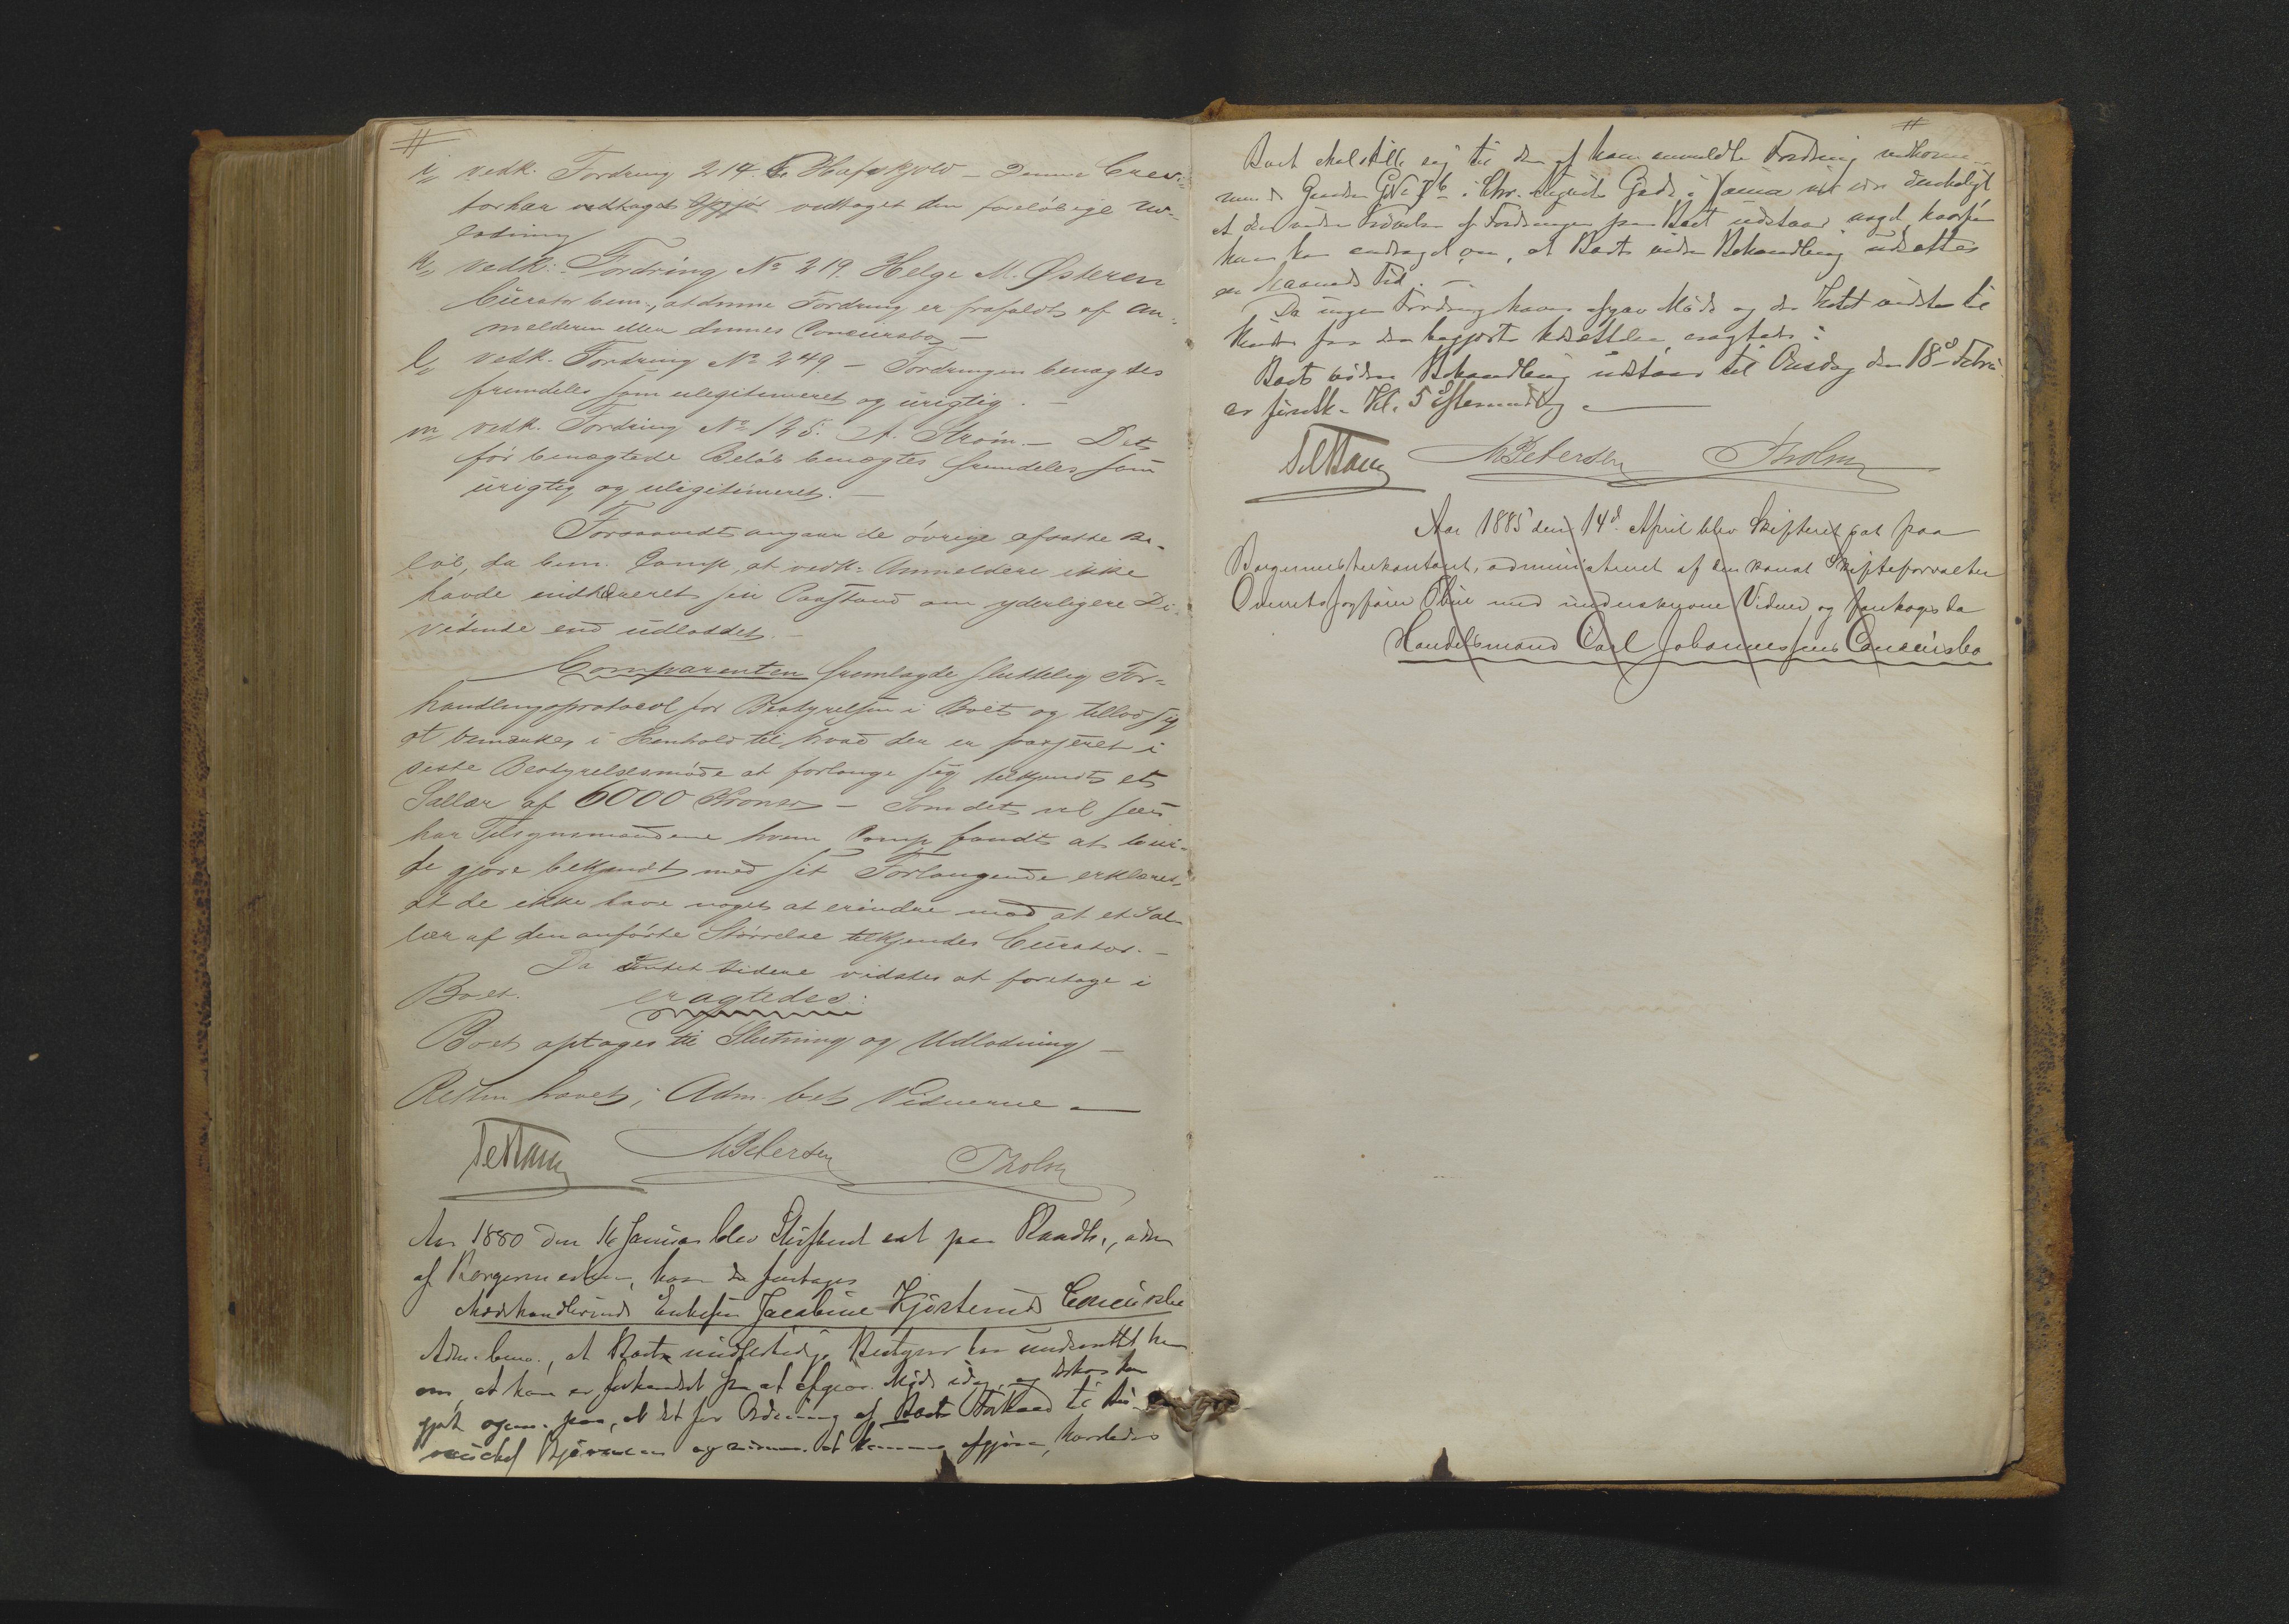 i, vedk. Fordring 214. Hafskjold – Denne Credi-
tor har vedtaget den foreløbige Ud-
lodning
k, vedk. Fordring No 219. Helge M. Østeren
Curator bem., at denne Fordring er frafaldt af An-
melderen eller dennes Concursbo –
l, vedk. Fordring No 249 – Fordringen benægtes
fremdeles som ulegitimeret og urigtig. –
m, vedk. Fordring No 125. A. Strøm. – Det
før benægtede Beløb benægtes fremdeles som
urigtig og uligitimeret. –
Forsaavidt angaar de øvrige afsatte Be-
løb, da bem. Comp, at vedk. Anmeldere ikke
havde indtaleret sin Paastand om yderligere Di-
vidende end udloddet. –
Comparenten fremlagde sluttelig For-
handlingsprotocol for Bestyrelsen i Boet og tillod sig
at bemærke i Henhold til hvad der er passeret i
sidste Bestyrelsesmøde at forlange sig tilkjendt et
Sallær af 6000 Kroner – Som det vil sees
har Tilsynsmændene hvem Comp fandt at bur-
de gjøre bekjendt med sit Forlangende erklæret,
at de ikke have noget at erindre mod at et Sal-
lær af den anførte Størrelse tilkjendes Curator. –
Da Intet videre vidstes at foretage i
Boet. eragtedes:
Boet optages til Slutning og Udlodning –
Retten hævet; Adm. bet Vidnerne –
MPetersen Tholm
Aar 1880 den 16 Januar blev Skifteret sat paa Raadh., adm
af Borgermesteren, hvor da foretages
Modehandlerinde Enkefru Jacobine Kjøsteruds Concursbo
Adm. bem., at Boets midlertidige Bestyrer har underrettet ham
om, at han er forhindret fra at afgive Møde idag, og derhos har
gjort opm. paa, at det for Ordning af Boets Forhold til
afgjøre, hvorledes
Boet skal stille sig til den af ham anmeldte Fordring vedkom-
mende Gaarden i Chr. Augusts Gade
at den videre af Fordringen paa Boet udstaar noget, hvorfor
han har andraget om, at Boets videre Behandling udsættes
en Maaneds Tid. –
Da ingen Fordringshaver afgav Møde og der Intet vidstes til
Hinder for den begjærte Udsættelse, eragtedes:
Boets videre Behandling udstaar til Onsdag den 18de Febru-
ar førstk. Kl. 5 Eftermiddag –
MPetersen Tholm
Aar 1885 den 14de April blev Skifteret sat paa
Borgermesterkontoret, administreret af den const Skifteforvalter
Overretssagfører med underskrevne Vidner, og foretages da
Handelsmand Carl Johannessens Concursbo